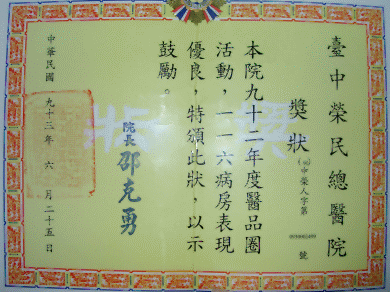 臺中榮民總醫院
獎狀
中榮人字第
號
本院九十二年度醫品圈
活動，一一六病房表現
優良，特頒此狀，以示
鼓勵。
院長 邵克勇
中華民國 九十三年 六月二十五日